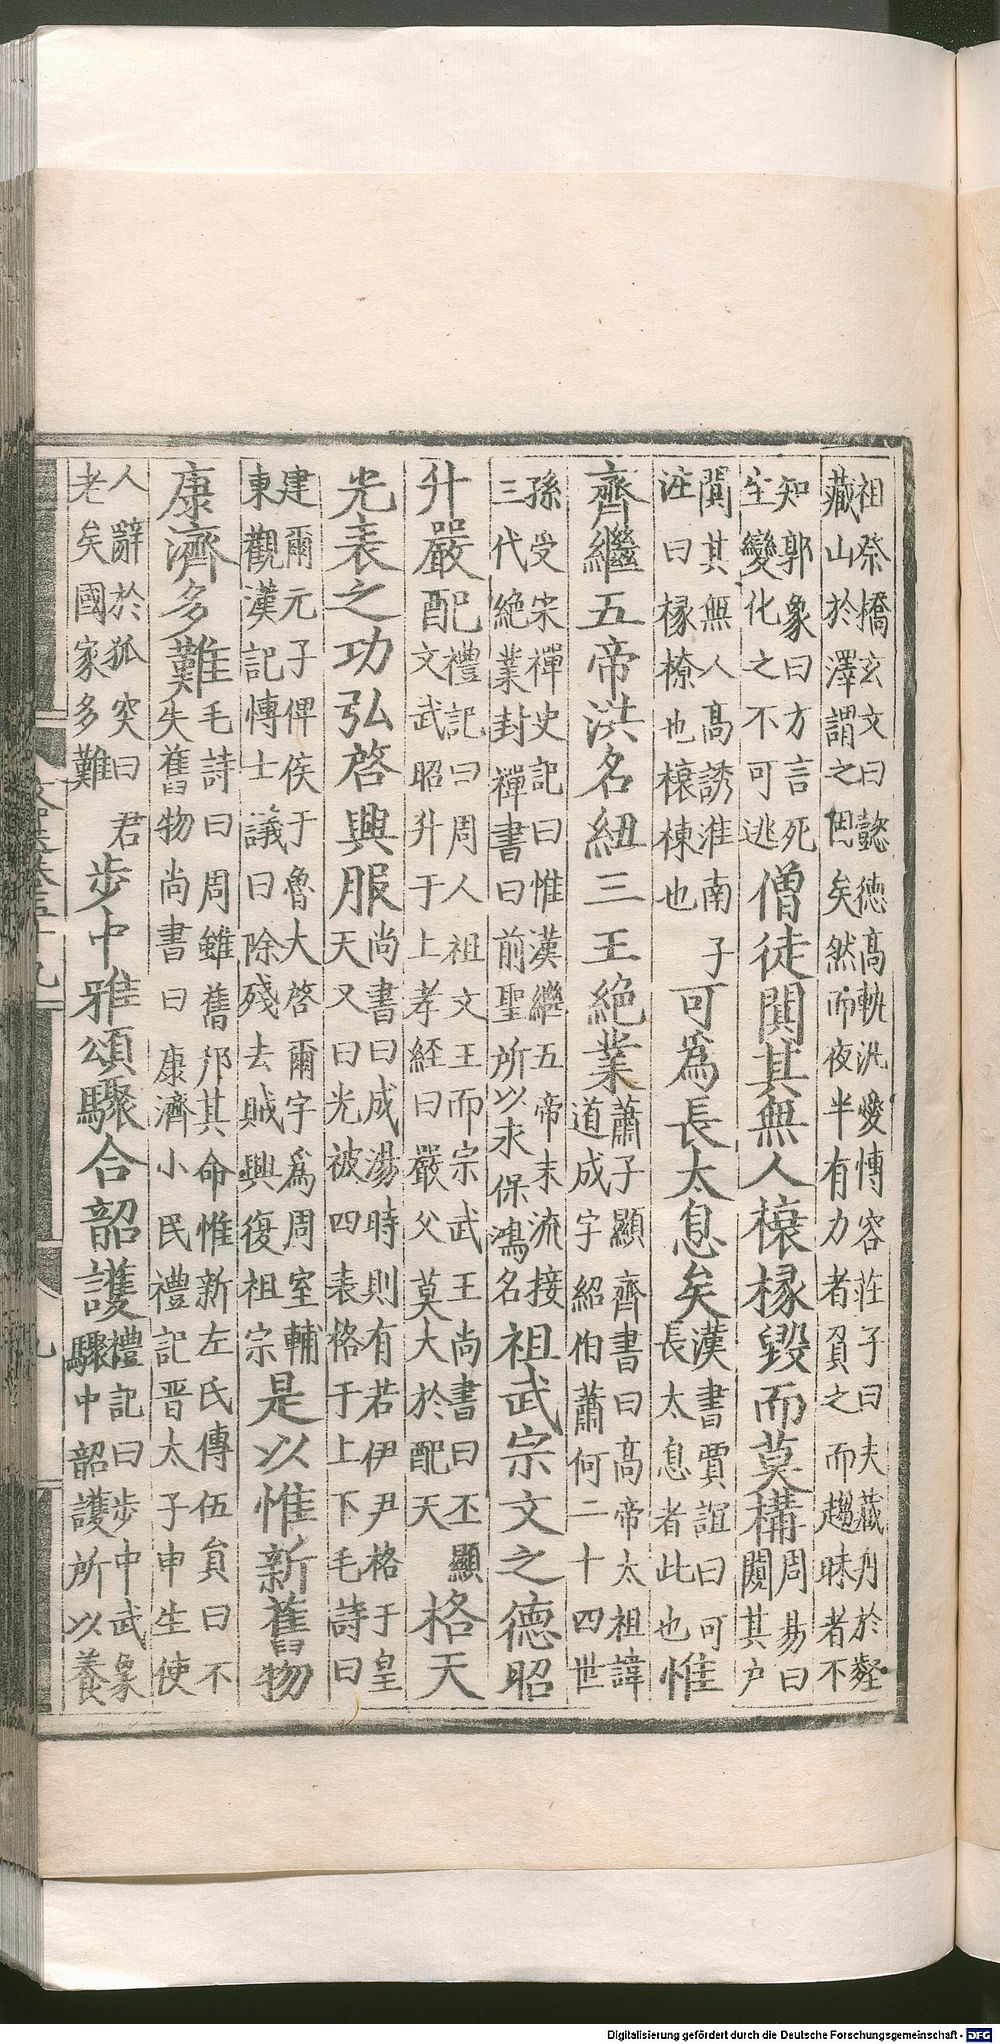 祖祭橋玄文曰懿德高軌汎愛愽容莊子曰夫藏舟於壑
藏山於澤謂之固矣然而夜半有力者負之而趨昧者不
知郭象曰方言死
生變化之不可逃
僧徒闃其無人榱椽毀而莫構
周易曰
闚其户
闃其無人高誘淮南子
注曰椽橑也榱棟也
可爲長太息矣
漢書賈誼曰可
長太息者此也
惟
齊繼五帝洪名紐三王絶業
蕭子顯齊書曰高帝太祖諱
道成字紹伯蕭何二十四世
孫受宋禪史記曰惟漢繼五帝末流接
三代絶業封禪書曰前聖所以永保鴻名
祖武宗文之德昭
升嚴配
禮記曰周人祖文王而宗武王尚書曰丕顯
文武昭升于上孝経曰嚴父莫大於配天
格天
光表之功弘啓興服
尚書曰成湯時則有若伊尹格于皇
天又曰光被四表格于上下毛詩曰
建爾元子俾侯于魯大啓爾宇爲周室輔
東觀漢記愽士議曰除殘去賊興復祖宗
是以惟新舊物
康濟多難
毛詩曰周雖舊邦其命惟新左氏傳伍員曰不
失舊物尚書曰康濟小民禮記晋太子申生使
人辭於狐突曰君
老矣國家多難
步中雅頌驟合韶護
禮記曰步中武象
驟中韶護所以養
Digitalisierung gefördert durch die Deutsche Forschungsgemeinschaft - DFG